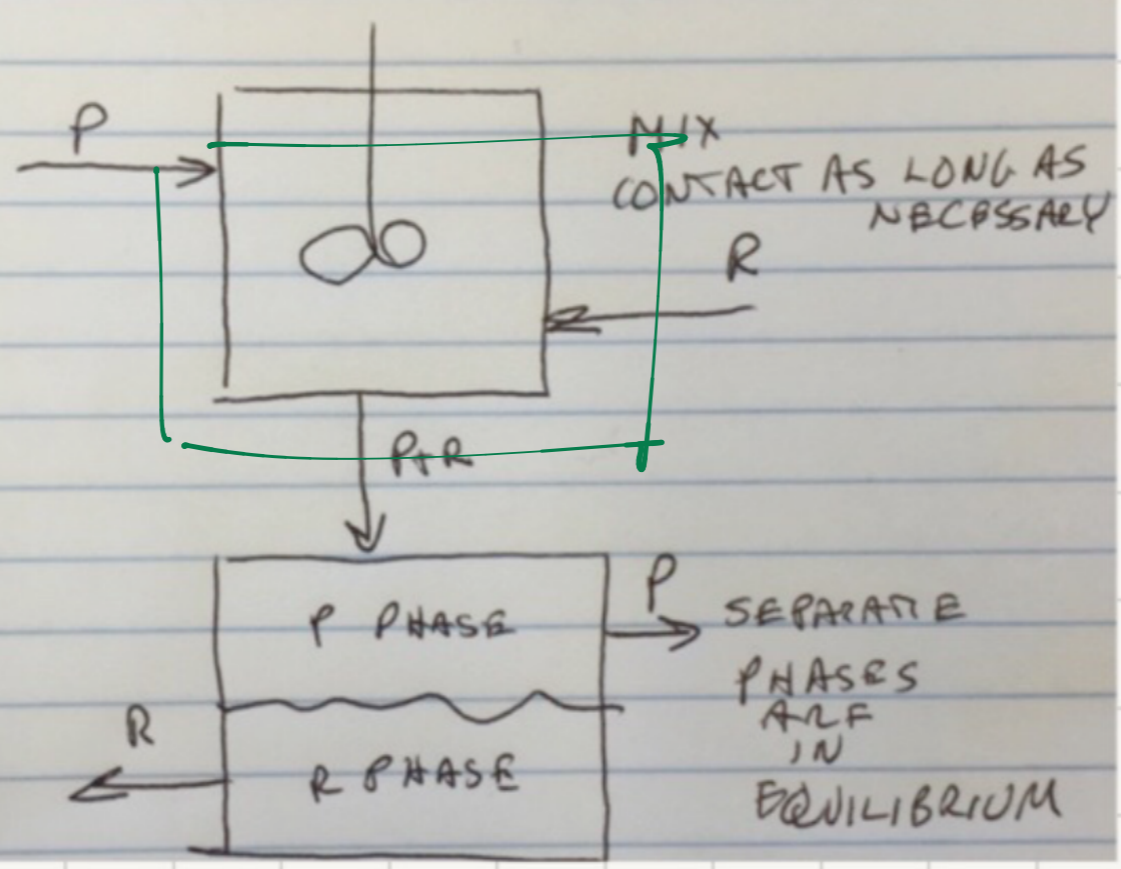 P
MIX
CONTACT AS LONG AS
NECESSARY
R
P+R
P PHASE
P
SEPARATE
PHASES
ARE
IN
EQUILIBRIUM
R
R PHASE